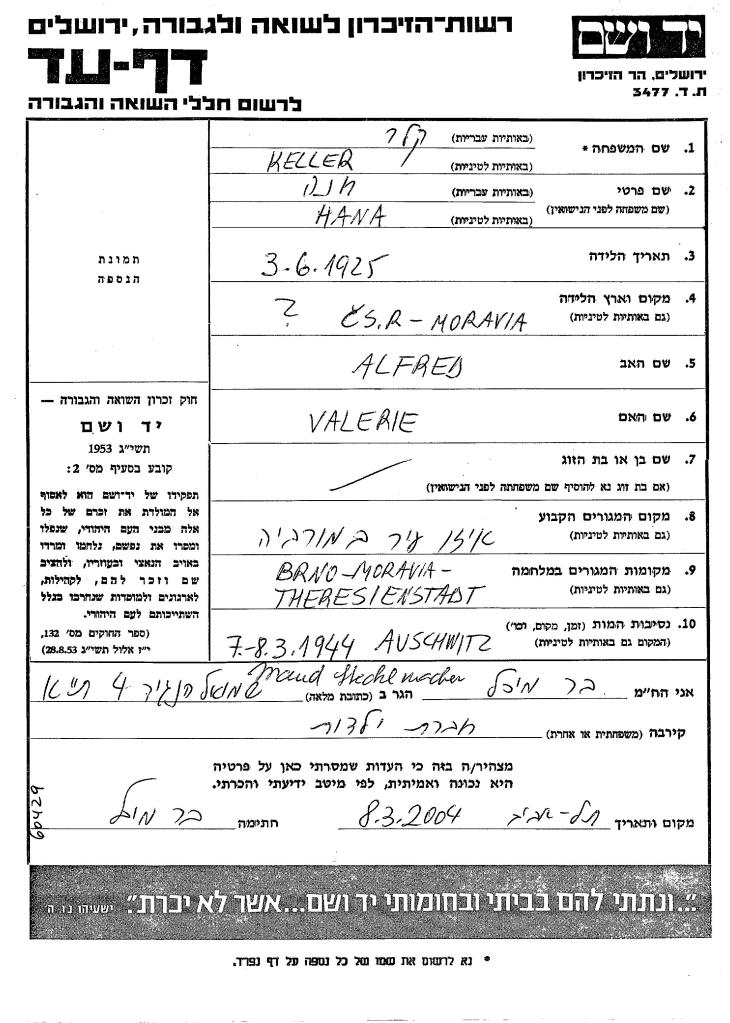 יד ושם
ירושלים, הר הזיכרון
ת. ד. 3477
רשות-הזיכרון לשואה ולגבורה, ירושלים
דף-עד
לרשום חללי השואה והגבורה
תמונת
הנספה
חוק זכרון השואה והגבורה —
יד ושם
תשי"ג 1953
קובע בסעיף מס' 2:
תפקידו של יד-ושם הוא לאסוף
אל המולדת את זכרם של כל
אלה מבני העם היהודי, שנפלו
ומסרו את נפשם, נלחמו ומרדו
באויב הנאצי ובעוזריו, ולהציב
שם וזכר להם, לקהילות,
לארגונים ולמוסדות שנחרבו בגלל
השתייכותם לעם היהודי.
(ספר החוקים מס' 132,
י"ז אלול תשי"ג 28.8.53)
1. שם המשפחה * (באותיות עבריות) קלר
(באותיות לטיניות) KELLER
2. שם פרטי (באותיות עבריות) חנה
(שם משפחה לפני הנישואין) (באותיות לטיניות) HANA
3. תאריך הלידה 3.6.1925
4. מקום וארץ הלידה
(גם באותיות לטיניות) ČS.R - MORAVIA ?
5. שם האב ALFRED
6. שם האם VALERIE
7. שם בן או בת הזוג
(אם בת זוג נא להוסיף שם משפחתה לפני הנישואין)
8. מקום המגורים הקבוע
(גם באותיות לטיניות) איזו עיר במורביה
9. מקומות המגורים במלחמה BRNO-MORAVIA-
(גם באותיות לטיניות) THERESIENSTADT
10. נסיבות המות (זמן, מקום, וכו')
(המקום גם באותיות לטיניות) 7.-8.3.1944 AUSCHWITZ
Maud
אני הח"מ בר מיכל הגר ב (כתובת מלאה) שמואל הנגיד 4 ת"א
קירבה (משפחתית או אחרת) חברת ילדות
מצהיר/ה בזה כי העדות שמסרתי כאן על פרטיה
היא נכונה ואמיתית, לפי מיטב ידיעתי והכרתי.
מקום ותאריך תל-אביב 8.3.2004 חתימה בר מיכל
60429
"...ונתתי להם בביתי ובחומותי יד ושם...אשר לא יכרת". ישעיהו נו, ה
* נא לרשום את שמו של כל נספה על דף נפרד.